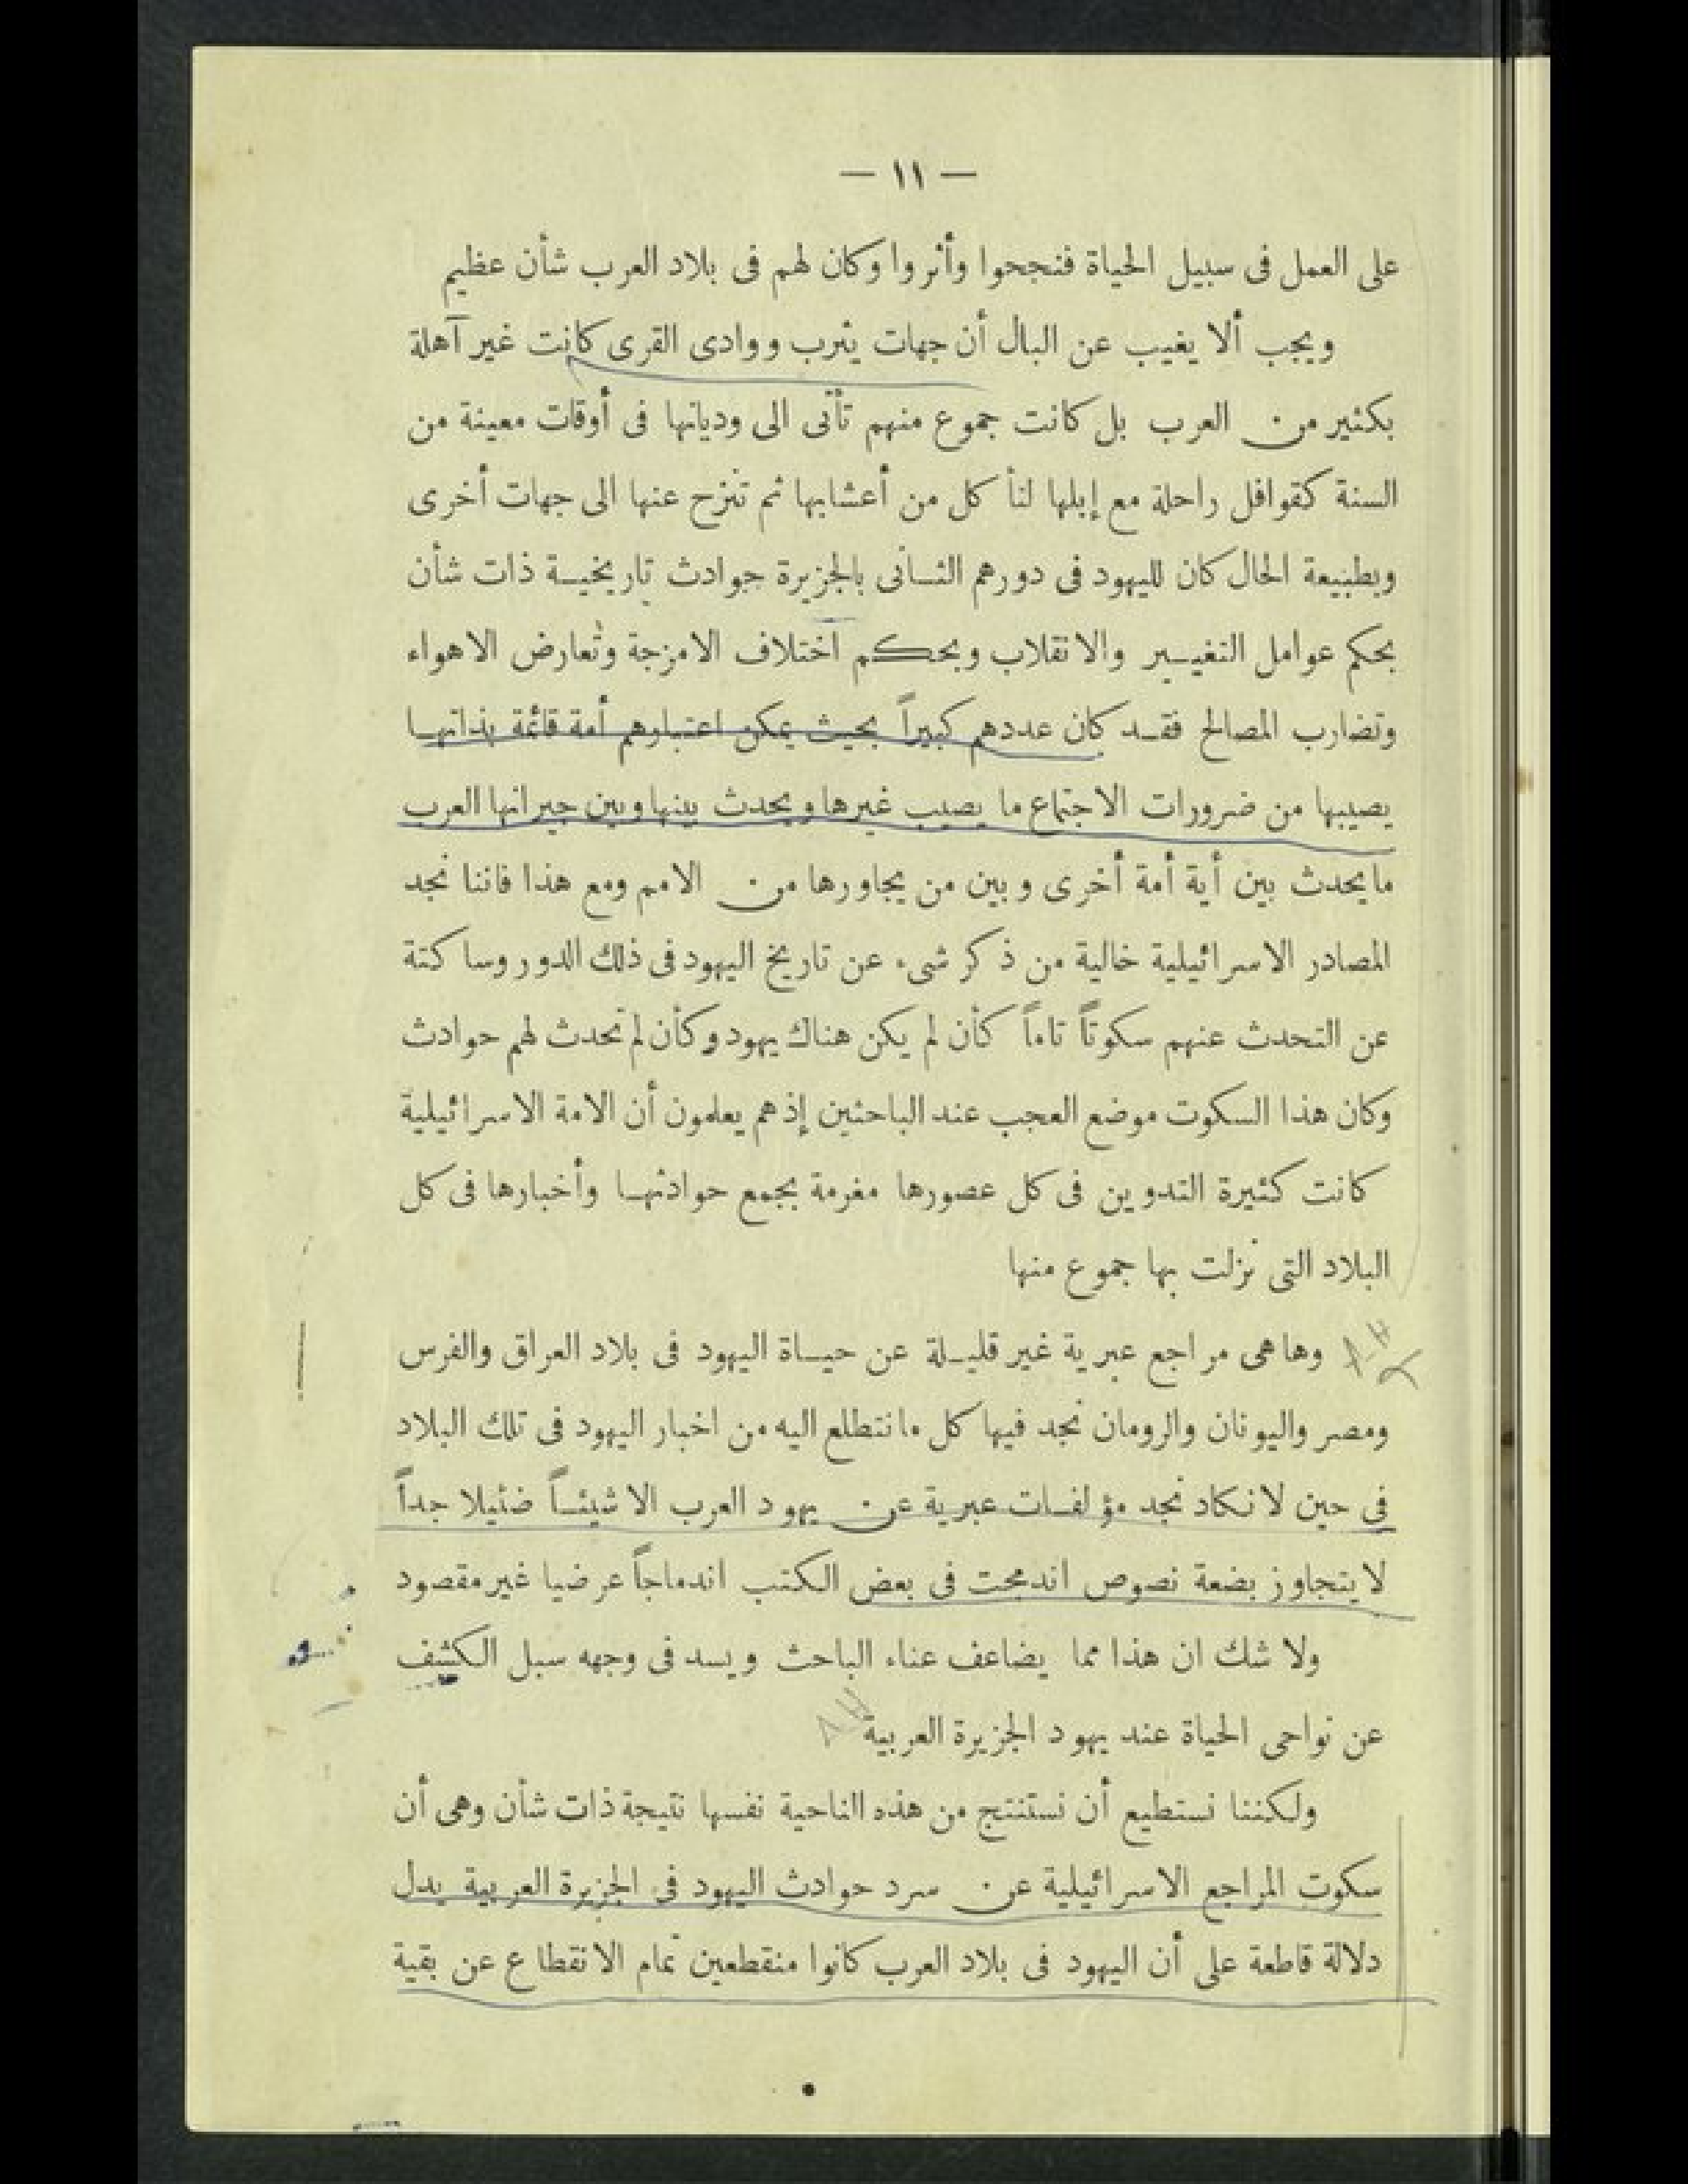 — ١١ —
على العمل فى سبيل الحياة فنجحوا وأثروا وكان لهم فى بلاد العرب شأن عظيم
ويجب ألا يغيب عن البال أن جهات يثرب ووادى القرى كانت غير آهلة
بكثير من العرب بل كانت جموع منهم تأتى الى وديانها فى أوقات معينة من
السنة كقوافل راحلة مع إبلها لتأكل من أعشابها ثم تنزح عنها الى جهات أخرى
وبطبيعة الحال كان لليهود فى دورهم الثانى بالجزيرة حوادث تاريخية ذات شأن
بحكم عوامل التغيير والانقلاب وبحكم اختلاف الامزجة وتعارض الاهواء
وتضارب المصالح فقد كان عددهم كبيراً بحيث يمكن اعتبارهم أمة قائمة بذاتها
يصيبها من ضرورات الاجتماع ما يصيب غيرها ويحدث بينها وبين جيرانها العرب
ما يحدث بين أية أمة أخرى وبين من يجاورها من الامم ومع هذا فاننا نجد
المصادر الاسرائيلية خالية من ذكر شىء عن تاريخ اليهود فى ذلك الدور وساكتة
عن التحدث عنهم سكوتاً تاماً كأن لم يكن هناك يهود وكأن لم تحدث لهم حوادث
وكان هذا السكوت موضع العجب عند الباحثين إذ هم يعلمون أن الامة الاسرائيلية
كانت كثيرة التدوين فى كل عصورها مغرمة بجمع حوادثها وأخبارها فى كل
البلاد التى نزلت بها جموع منها
وها هى مراجع عبرية غير قليلة عن حياة اليهود فى بلاد العراق والفرس
ومصر واليونان والرومان نجد فيها كل ما نتطلع اليه من اخبار اليهود فى تلك البلاد
فى حين لا نكاد نجد مؤلفات عبرية عن يهود العرب الا شيئاً ضئيلا جداً
لا يتجاوز بضعة نصوص اندمجت فى بعض الكتب اندماجاً عرضيا غير مقصود
ولا شك ان هذا مما يضاعف عناء الباحث ويسد فى وجهه سبل الكشف
عن نواحى الحياة عند يهود الجزيرة العربية
ولكننا نستطيع أن نستنتج من هذه الناحية نفسها نتيجة ذات شأن وهى أن
سكوت المراجع الاسرائيلية عن سرد حوادث اليهود فى الجزيرة العربية يدل
دلالة قاطعة على أن اليهود فى بلاد العرب كانوا منقطعين تمام الانقطاع عن بقية